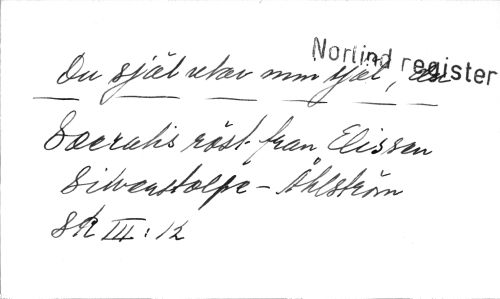 Norlind register
Du själ utav min själ, du
Socratis röst från Elissen
Silverstolpe - Åhlström
SR III: 12